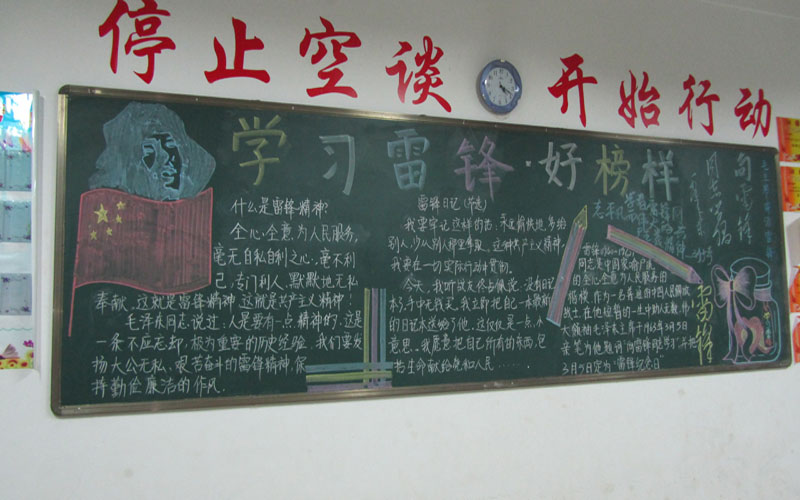 停止空谈 开始行动
学习雷锋·好榜样
什么是雷锋精神?
全心全意为人民服务,
毫无自私自利之心,毫不利
己,专门利人,默默地无私
奉献,这就是雷锋精神,这就是共产主义精神!
毛泽东同志说过:人是要有一点精神的,这是
一条不应无却,极为重要的历史经验。我们要发
扬大公无私、艰苦奋斗的雷锋精神,保
持勤俭廉洁的作风。
雷锋日记(节选)
我要牢记这样的话:永远愉快地多给
别人,少从别人那里拿取,这种共产主义精神,
我要在一切实际行动中贯彻。
今天,我听战友佟占佩说,没有日记
本了,手中无钱买,我立即把自己一本崭新
的日记本送给了他。这仅仅是一点小
意思。我愿意把自己所有的东西,包
括生命献给党和人民……
雷锋
同志是中国家喻户晓
的全心全意为人民服务的
楷模,作为一名普通的中国人民解放
战士在他短暂的一生中助人无数,伟
大领袖毛泽东主席于1963年3月5日
亲笔为他题词“向雷锋同志学习”,并把
3月5日定为“雷锋纪念日”
向雷锋
同志学习
毛泽东
雷锋